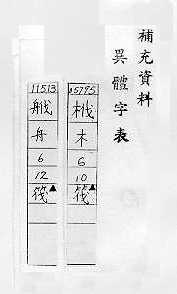 補充資料
異體字表
05795
栰
木
6
10
筏▲
11513
舟
6
12
筏▲